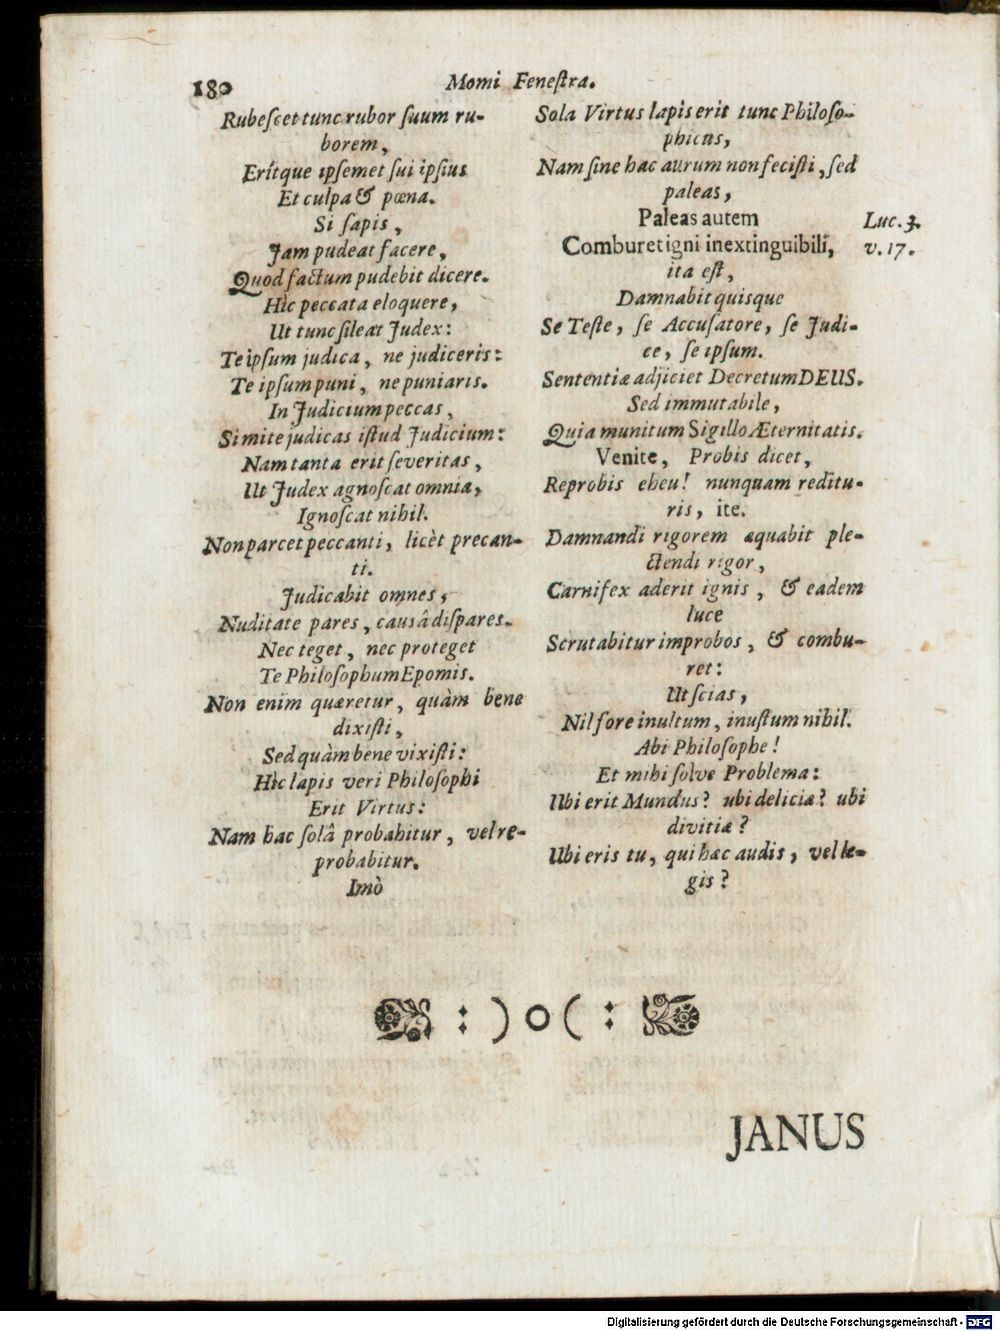 180
Momi Feneſtra.
Rubeſcet tunc rubor ſuum ru-
borem,
Erítque ipſemet ſui ipſius
Et culpa & pœna.
Si ſapis,
Jam pudeat facere,
Quod factum pudebit dicere.
Hìc peccata eloquere,
Ut tunc ſileat Judex:
Te ipſum judica, ne judiceris:
Te ipſum puni, ne puniaris.
In Judicium peccas,
Si mite judicas iſtud Judicium:
Nam tanta erit ſeveritas,
Ut Judex agnoſcat omnia,
Ignoſcat nihil.
Non parcet peccanti, licèt precan-
ti.
Judicabit omnes,
Nuditate pares, causâ diſpares.
Nec teget, nec proteget
Te Philoſophum Epomis.
Non enim quæretur, quàm bene
dixiſti,
Sed quàm bene vixiſti:
Hìc lapis veri Philoſophi
Erit Virtus:
Nam hac ſolâ probabitur, vel re-
probabitur.
Imò
Sola Virtus lapis erit tunc Philoſo-
phicus,
Nam ſine hac aurum non feciſti, ſed
paleas,
Paleas autem
Luc. 3.
Comburet igni inextinguibili,
v. 17.
ita eſt,
Damnabit quisque
Se Teſte, ſe Accuſatore, ſe Judi-
ce, ſe ipſum.
Sententiæ adjiciet Decretum DEUS.
Sed immutabile,
Quia munitum Sigillo Æternitatis.
Venite, Probis dicet,
Reprobis eheu! nunquam redítu-
ris, ite.
Damnandi rigorem æquabit ple-
ctendi rigor,
Carnifex aderit ignis, & eadem
luce
Scrutabitur improbos, & combu-
ret:
Ut ſcias,
Nil fore inultum, inuſtum nihil.
Abi Philoſophe!
Et mihi ſolve Problema:
Ubi erit Mundus? ubi deliciæ? ubi
divitiæ?
Ubi eris tu, qui hæc audis, vel le-
gis?
: ) o ( :
JANUS
Digitalisierung gefördert durch die Deutsche Forschungsgemeinschaft - DFG